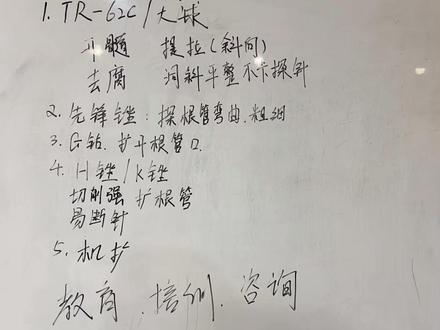 1. TR-62C/大球
开髓 提拉(斜向)
去腐 洞斜平整不卡探针
2. 先锋锉:探根管弯曲.粗细
3. G钻.扩开根管口
4. H锉/K锉
切削强 扩根管
易断针
5. 机扩
教育.培训.咨询